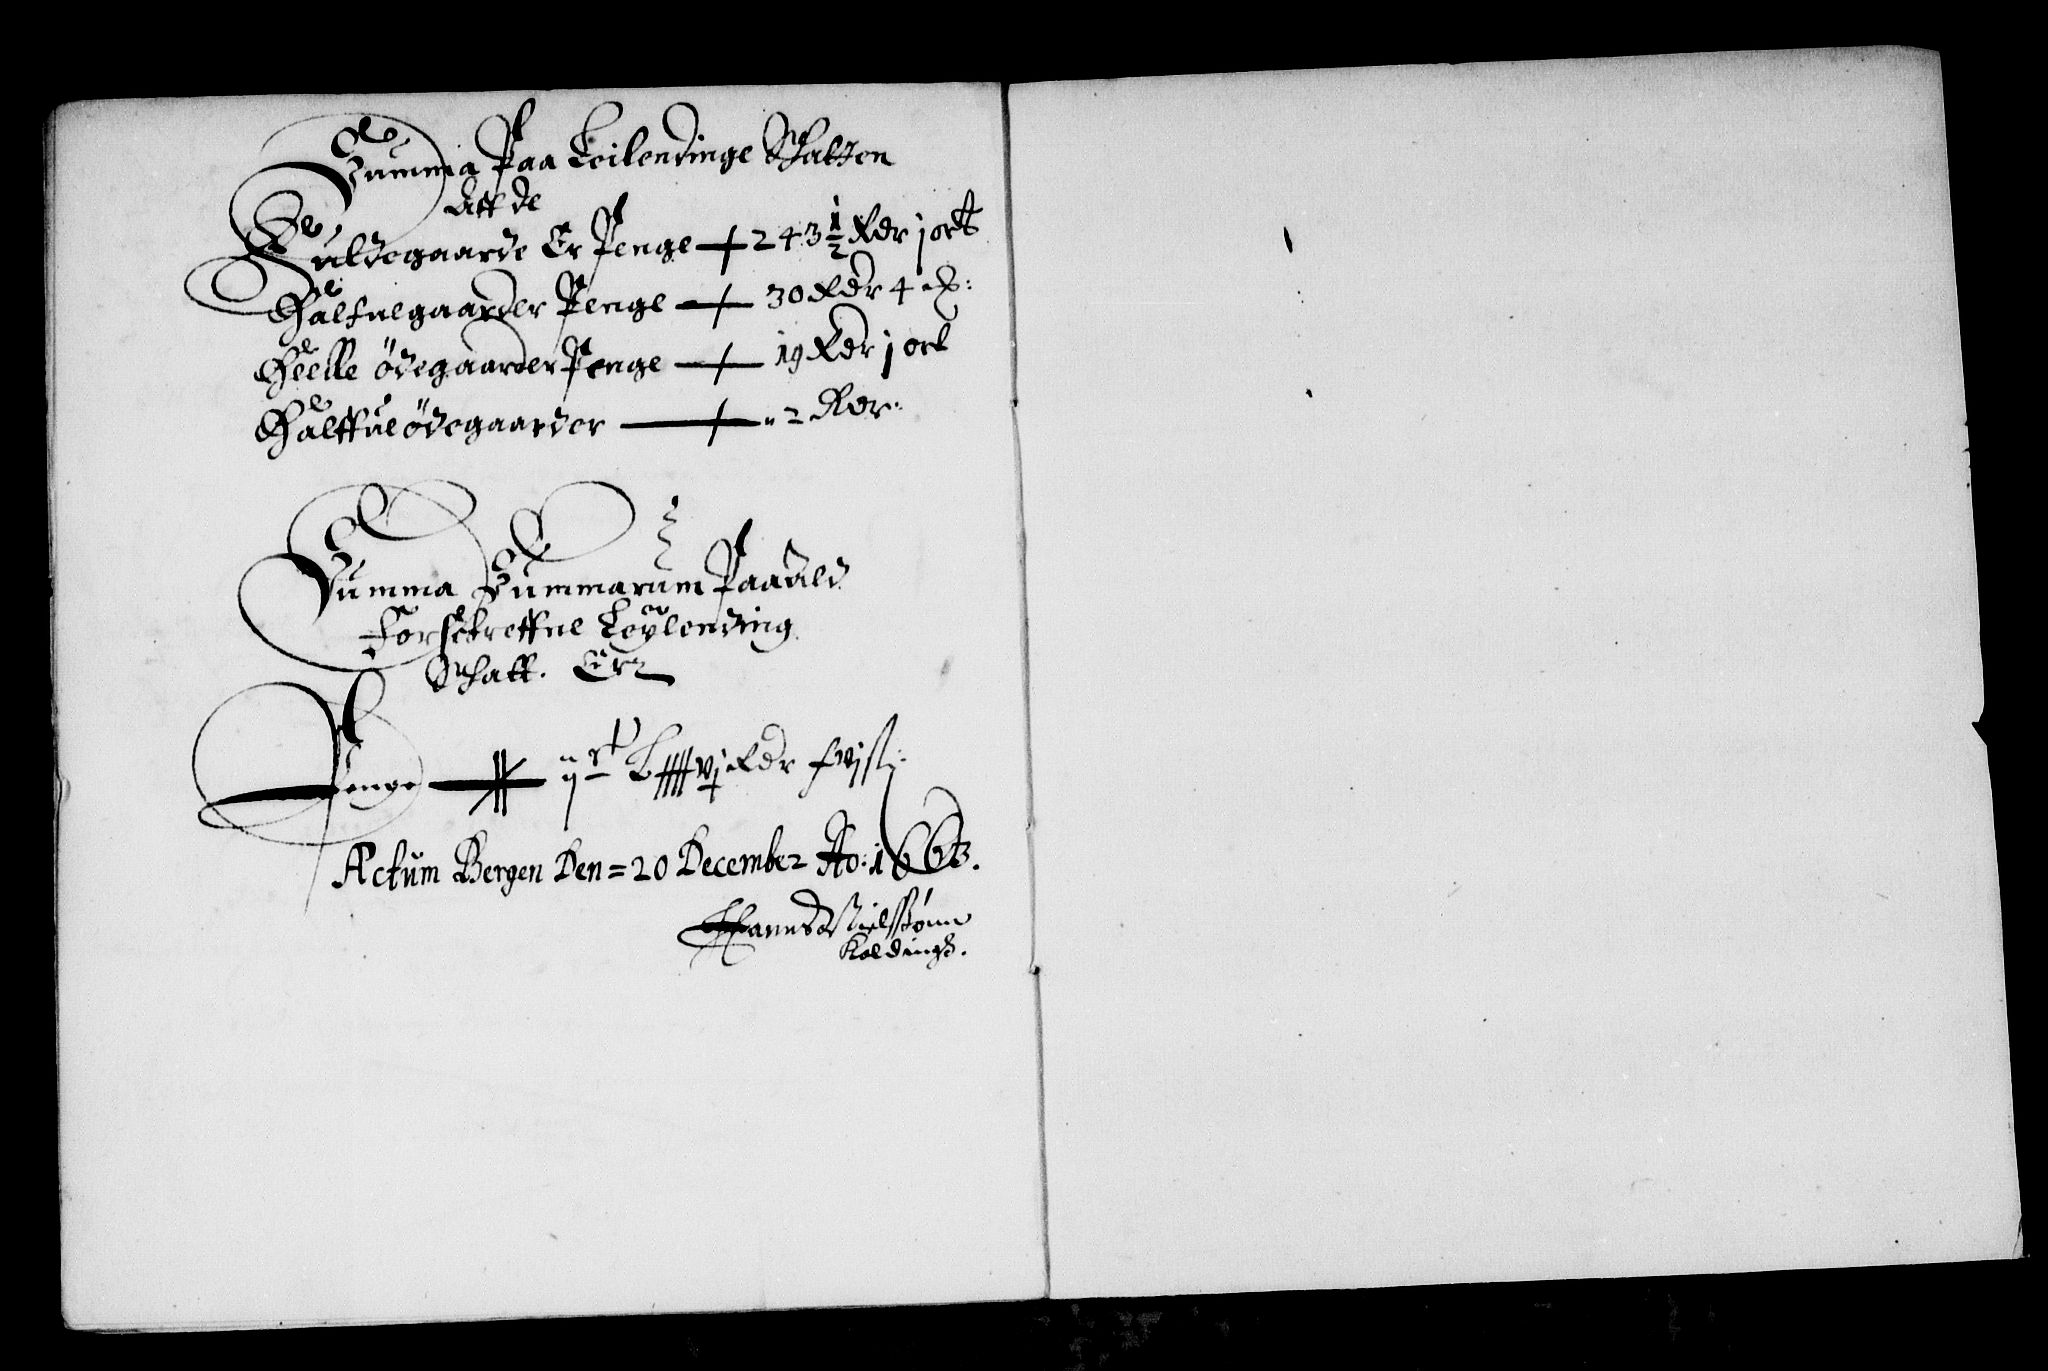 Summa Paa Leilendinge Skatten
Aff de
Fuldegaarde Er Penge 243 1/2 Rdr j ortt
Halfuegaarder Penge 30 Rdr 4 ß:
Heelle ödegaarder Penge 19 Rdr j ort
Halffue ödegaarder 2 Rdr:
Summa Summarum Paa ald
Forschreffne Leylending
Skatt. Er
Penge Rdr
Actum Bergen Den = 20 December Ao: 1663.
Hanns Nielssønn
Koldingh.